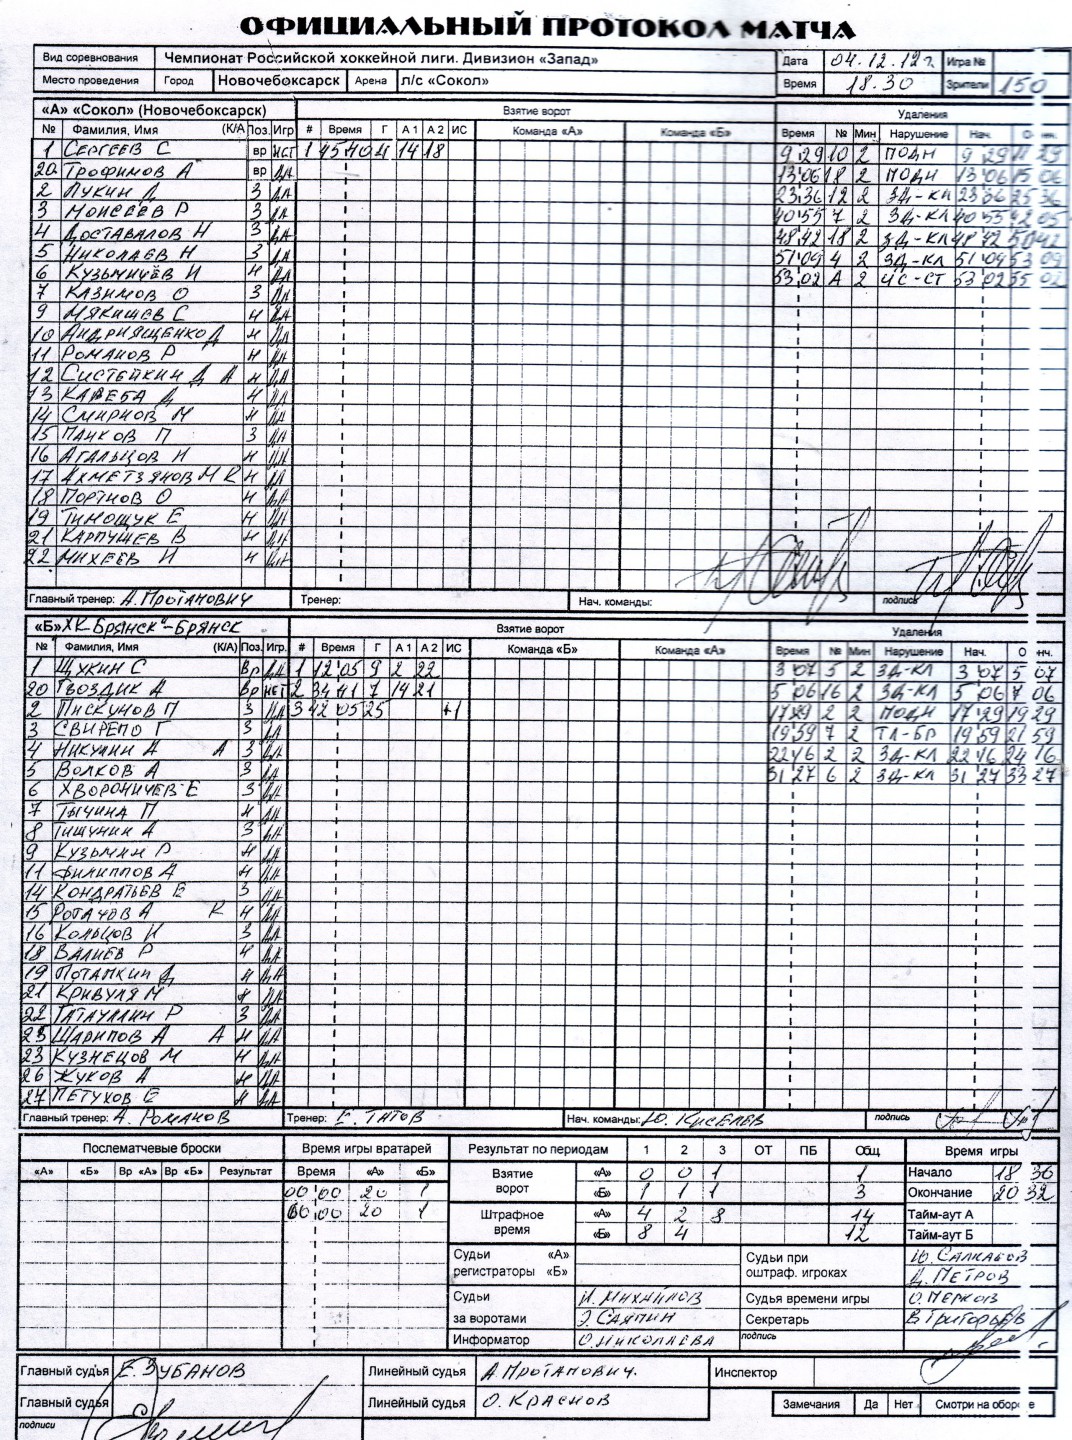 ОФИЦИАЛЬНЫЙ ПРОТОКОЛ МАТЧА
Вид соревнования Чемпионат Российской хоккейной лиги. Дивизион «Запад» Дата 04.12.12г. Игра №
Место проведения Город Новочебоксарск Арена л/с «Сокол» Время 18.30 Зрители 150
«А» «Сокол» (Новочебоксарск) Взятие ворот Удаления
№ Фамилия, Имя (К/А) Поз. Игр # Время Г А 1 А 2 ИС Команда «А» Команда «Б» Время № Мин Нарушение Нач.
1 СЕРГЕЕВ С вр 1 45 40 4 14 18 9 29 10 2 ПОДН 9 29 11 29
20 ТРОФИМОВ А вр ДА 13 06 18 2 ПОДН 13 06 15 06
2 ЛУКИН Д З ДА 23 36 12 2 ЗД-КЛ 23 36 25 36
3 МОИСЕЕВ Р З ДА 40 55 7 2 ЗД-КЛ 40 55 42 05
4 ДОСТАВАЛОВ Н З ДА 48 42 18 2 ЗД-КЛ 48 42 50 42
5 НИКОЛАЕВ Н З ДА 51 09 4 2 ЗД-КЛ 51 09 53 09
6 КУЗЬМИЧЁВ И Н ДА 53 02 А 2 ЧС-СТ 53 02 55 02
7 КАЗИМОВ О З ДА
9 МЯКИШЕВ С Н ДА
10 АНДРИЯЩЕНКО Д Н ДА
11 РОМАНОВ Р Н ДА
12 СИСТЕЙКИН Д А Н ДА
13 КАРЕБА Д Н ДА
14 СМИРНОВ М Н ДА
15 ПАНКОВ П З ДА
16 АГАЛЬЦОВ Н Н ДА
17 АХМЕТЗЯНОВ М К Н ДА
18 ПОРТНОВ О Н ДА
19 ТИМОЩУК Е Н ДА
21 КАРПУШЕВ В Н ДА
22 МИХЕЕВ И Н ДА
Главный тренер: А. ПРОТАПОВИЧ Тренер: Нач. команды: подпись
«Б» ХК-Брянск"-БРЯНСК Взятие ворот Удаления
№ Фамилия, Имя (К/А) Поз. Игр. # Время Г А 1 А 2 ИС Команда «Б» Команда «А» Время № Мин Нарушение Нач.
1 ЩУКИН С Вр ДА 1 12 05 9 2 22 3 07 5 2 ЗД-КЛ 3 07 5 07
20 ГВОЗДИК А Вр НЕТ 2 34 41 7 14 21 5 06 16 2 ЗД-КЛ 5 06 7 06
2 ПИСКУНОВ П З ДА 3 42 05 25 +1 17 29 2 2 ПОДН 17 29 19 29
3 СВИРЕПО Г З ДА 19 59 7 2 ТЛ-БР 19 59 21 59
4 НИКУЛИН А А З ДА 22 16 2 2 ЗД-КЛ 22 16 24 16
5 ВОЛКОВ А З ДА 31 27 6 2 ЗД-КЛ 31 27 33 27
6 ХВОРОНИЧЕВ Е З ДА
7 ТЫЧИНА П Н ДА
8 ТИШУНИН А З ДА
9 КУЗЬМИН Р Н ДА
11 ФИЛИППОВ А Н ДА
14 КОНДРАТЬЕВ Е З ДА
15 РОГАЧОВ А К Н ДА
16 КОЛЬЦОВ Н З ДА
18 ВАЛИЕВ Р Н ДА
19 ПОТАПКИН Д Н ДА
21 КРИВУЛЯ М Н ДА
22 ГАТАУЛЛИН Р З ДА
25 ШАРИПОВ А А Н ДА
23 КУЗНЕЦОВ М Н ДА
26 ЖУКОВ А Н ДА
27 ПЕТУХОВ Е Н ДА
Главный тренер: А. РОМАНОВ Тренер: Е. ТАТОВ Нач. команды: Ю. КИСЕЛЕВ подпись
Послематчевые броски Время игры вратарей Результат по периодам 1 2 3 ОТ ПБ Общ Время игры
«А» «Б» Вр «А» Вр «Б» Результат Время «А» «Б» Взятие ворот «А» 0 0 1 1 Начало 18 30
00 00 20 1 «Б» 1 1 1 3 Окончание 20 32
60 00 20 1 Штрафное время «А» 4 2 8 14 Тайм-аут А
«Б» 8 4 12 Тайм-аут Б
Судьи регистраторы «А» «Б» Судьи при оштраф. игроках Ю. САЛКАЕОВ
Д. ПЕТРОВ
Судьи за воротами И. МИХАЙЛОВ Судья времени игры О. ПЕРКОВ
Э. САЯПИН Секретарь В. ГРИГОРЬЕВ
Информатор О. НИКОЛАЕВА подпись
Главный судья Е. ЗУБАНОВ Линейный судья А. ПРОТАПОВИЧ. Инспектор
Главный судья Линейный судья О. КРАСНОВ Замечания Да Нет Смотри на обороте
подписи